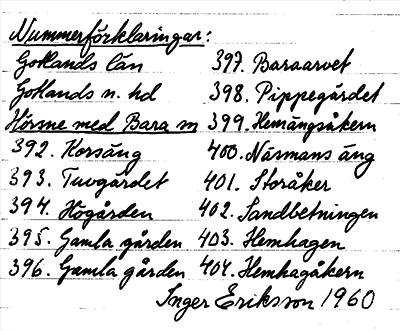 Nummerförklaringar:
Gotlands län
Gotlands n. hd
Hörsne med Bara sn
392. Korsäng
393. Tuvgårdet
394. Högården
395. Gamla gården
396. Gamla gården
397. Baraarvet
398. Pippegårdet
399. Hemängsåkern
400. Näsmans äng
401. Storåker
402. Sandbetningen
403. Hemhagen
404. Hemhagåkern
Inger Eriksson 1960